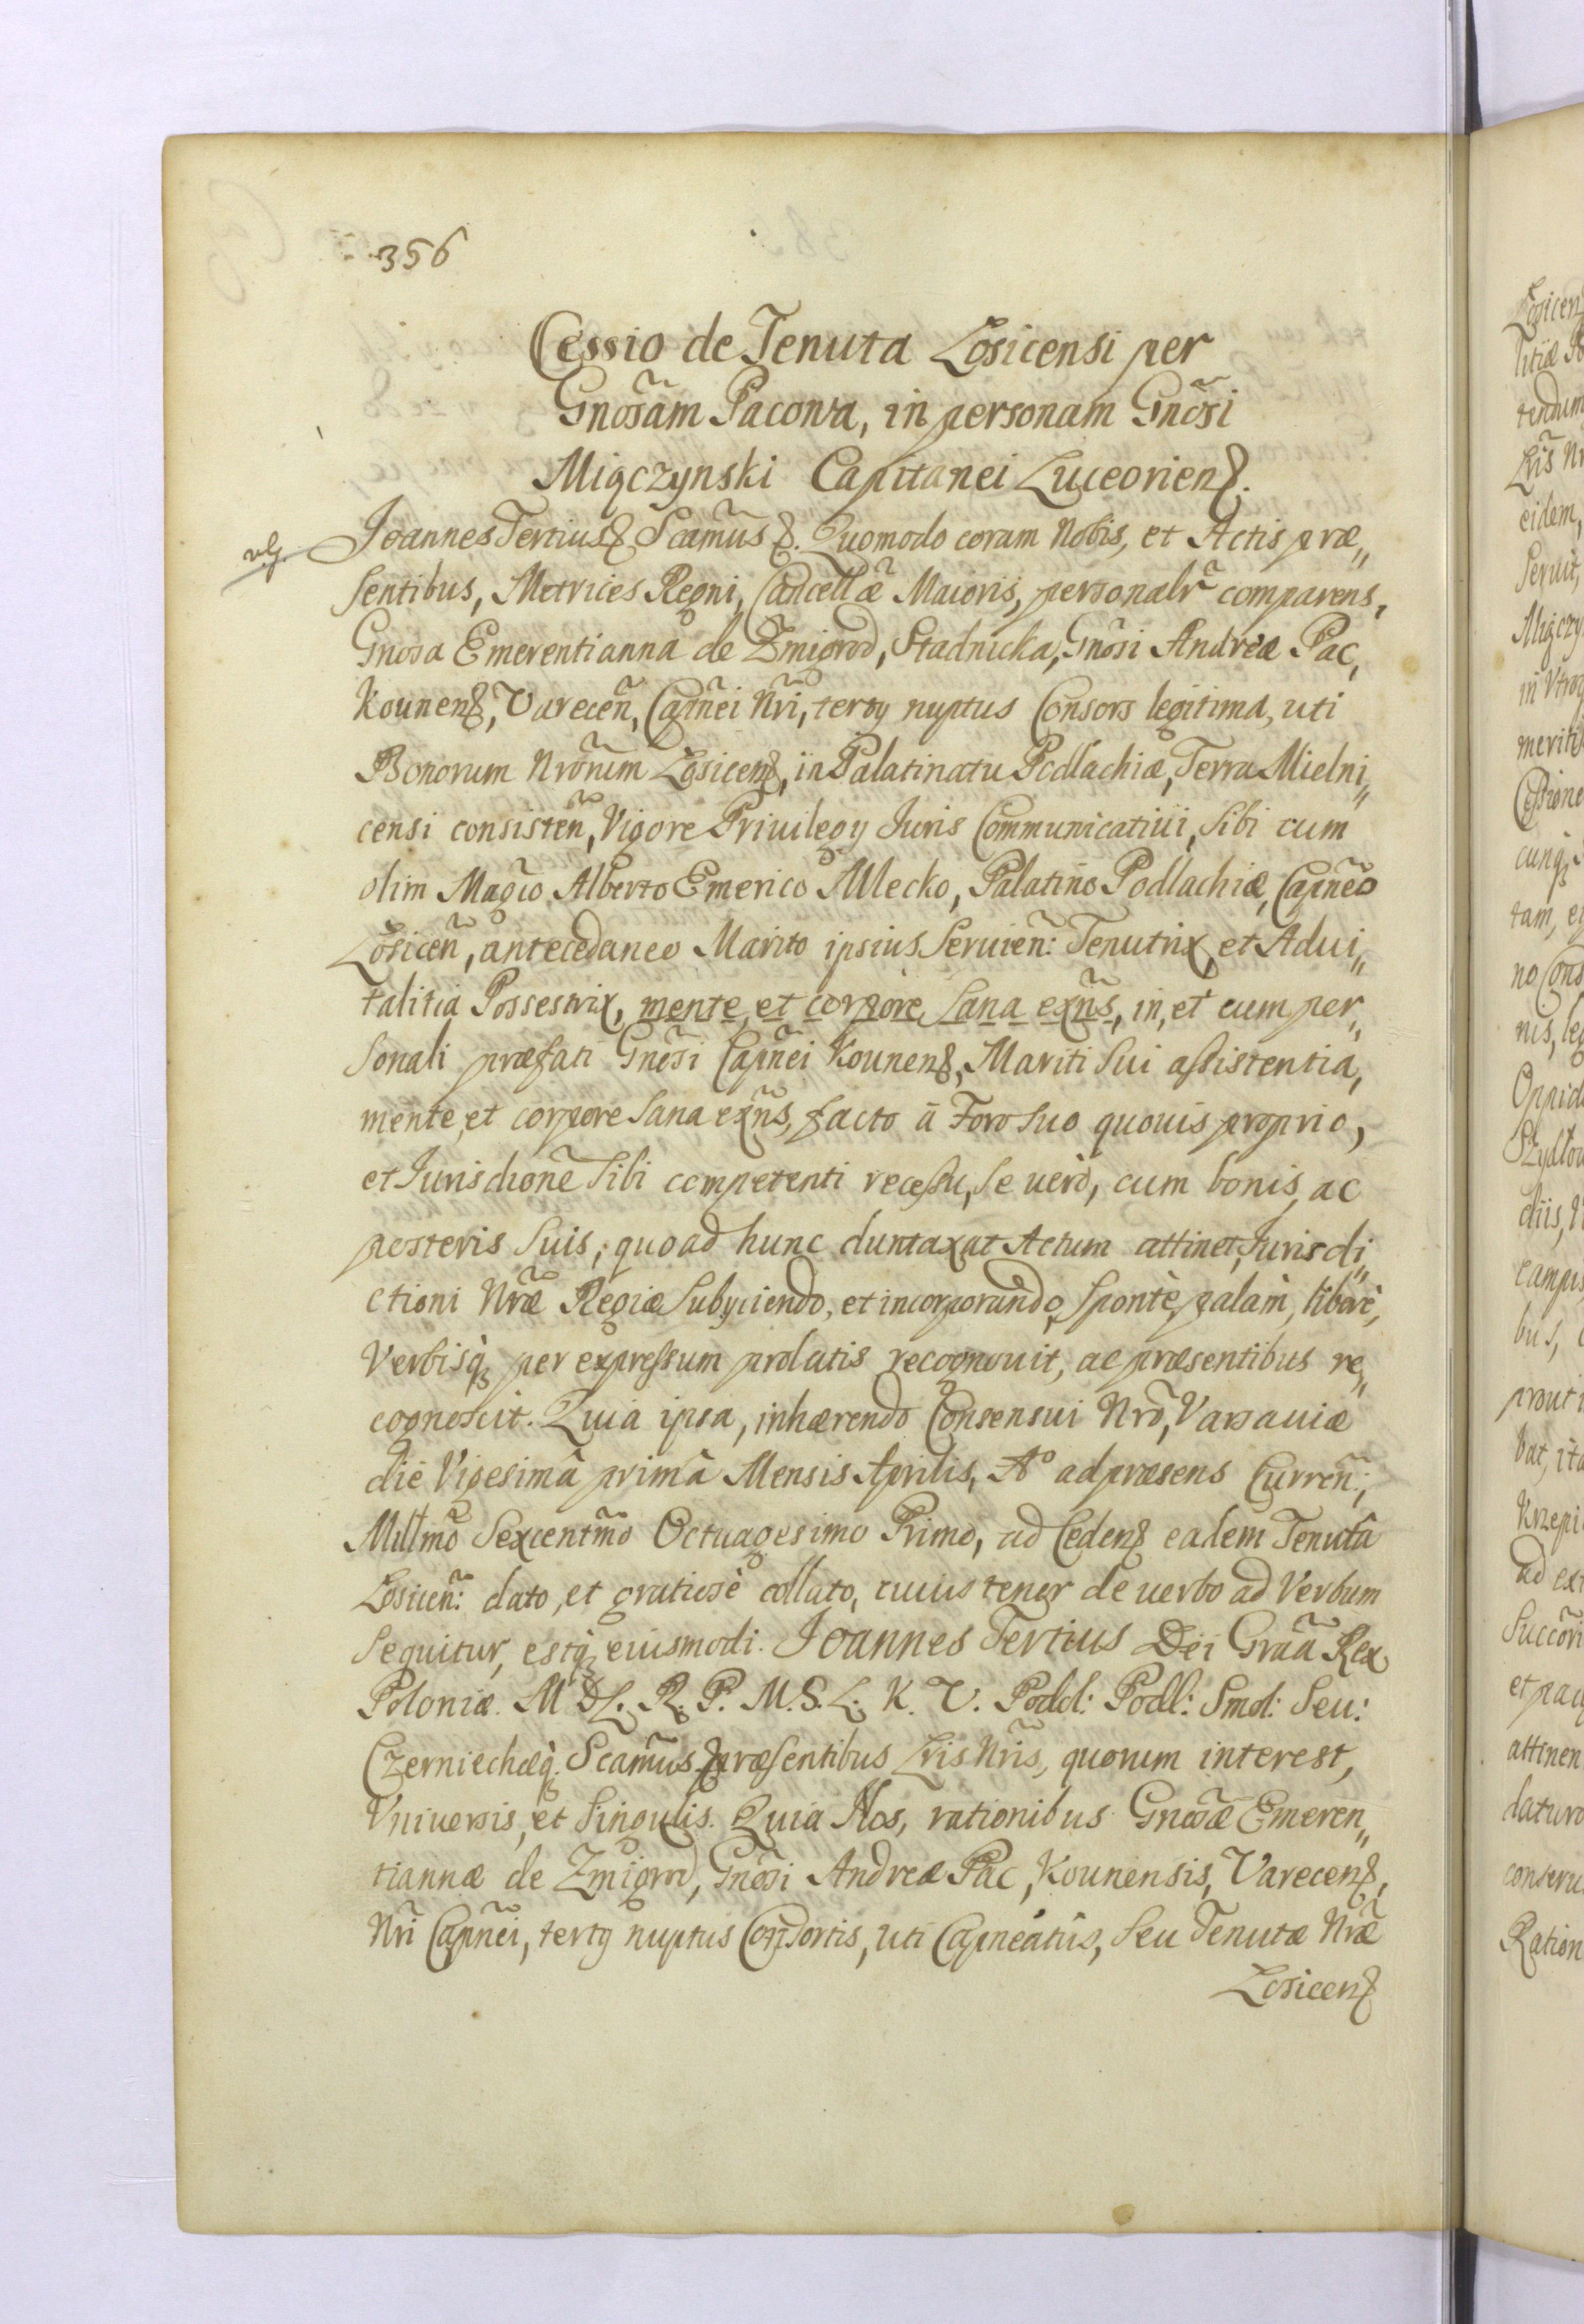 356
Cessio de Tenuta Łosicensi per
Gnosãm Pacowa, in personam Gnõsi
Miączynski Capitanei Luceorien̨.
Joannes Tertius &. Scamũs &. Quomodo coram Nobis, et Actis præ„
sentibus, Metrices Regni, Cancellæ Maioris, personalr̃ comparens,
Gnosa Emerentianna de Zmigrod, Stadnicka, Gnõsi Andreæ Pac,
Kounen̨, Varecen̄, Capnẽi Nr̃i, tertÿ nuptus Consors legitima, uti
Bonorum Nrõrum Łosicen̨, in Palatinatu Podlachiæ, Terra Mielni„
censi consisten̄, Vigore Priuilegÿ Juris Communicatiui, sibi cum
olim Magc̃o Alberto Emerico Mlecko, Palatino Podlachiæ, Capnẽo
Łosicen̄, antecedaneo Marito ipsius seruien̄: Tenutrix, et Adui„
talitia Possestrix, mente, et corpore sana exñs, in, et cum per„
sonali præfati Gnõsi Capnẽi Kounen̨, Mariti sui assistentia,
mente, et corpore sana exñs, facto â Foro suo quouis proprio,
et Jurisdionẽ sibi competenti recessu, se uerò, cum bonis, ac
posteris suis, quoad hunc duntaxat Actum attinet, Jurisdi„
ctioni Nr̃æ Regiæ subÿciendo, et incorporando, spontè, palàm, liberè,
Verbisq̃ per expressum prolatis recognouit, ac præsentibus re„
cognoscit. Quia ipsa, inhærendo Consensui Nrõ, Varsauiæ
die Vigesimâ primâ Mensis Aprilis, Aº ad præsens Curren̄:,
Millmõ Sexcentmõ Octuagesimo Primo, ad Ceden̨ eadem Tenutâ
Łosicen̄: dato, et gratiosè collato, cuius tenor de uerbo ad Verbum
sequitur, estq̃ eiusmodi. Joannes Tertius Dei Grãa Rex
Poloniæ. M D L. R. P. M. S. L. K. V. Podol: Podl: Smol: Seu:
Czerniechæq̃. Scamũs præsentibus Lris Nr̃is, quorum interest,
Vniuersis, et singulis. Quia Nos, rationibus Gnosæ Emeren„
tiannæ de Zmigrod, Gnõsi Andreæ Pac, Kounensis, Varecen̨,
Nr̃i Capnẽi, tertÿ nuptus Consortis, uti Capneatûs, seu Tenutæ Nr̃æ
Łosicen̨